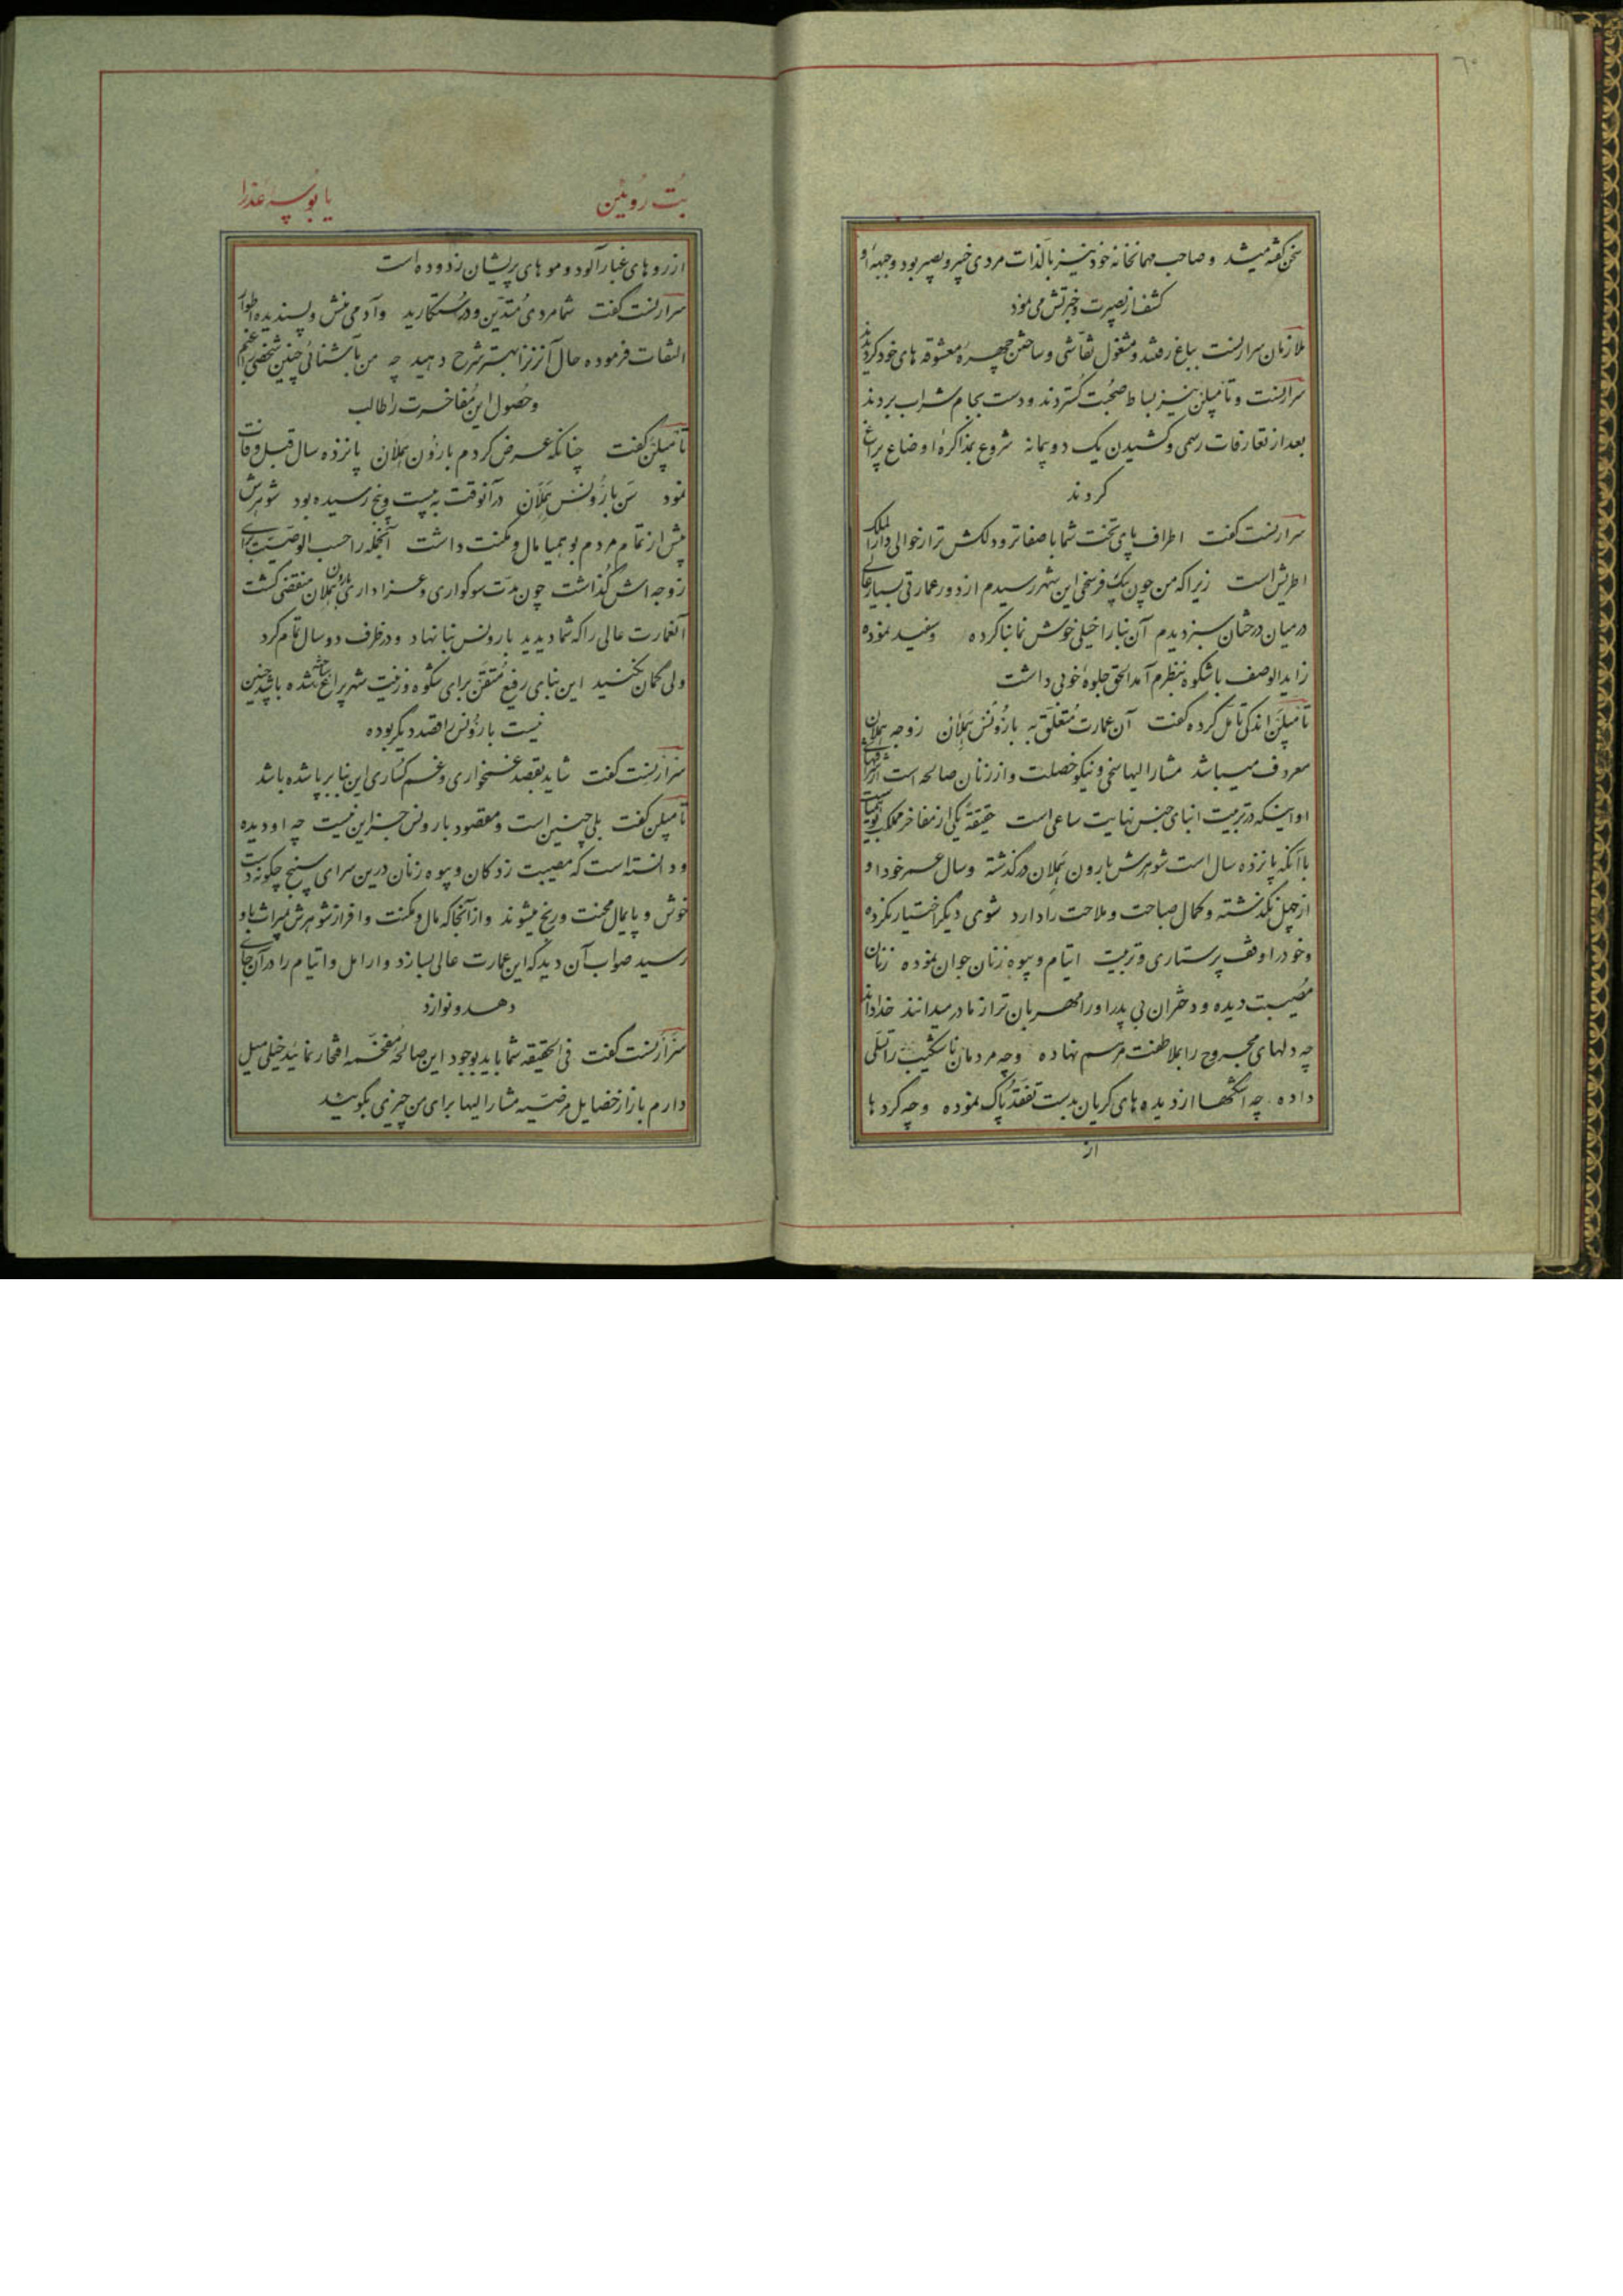 ٦٠
سخن گفته میشد و صاحب مهمانخانه خود نیز بالذات مردی خبیر و بصیر بود و جبهه او
کشف از بصیرت و خبرتش می نمود
ملازمان سرارنست بباغ رفتند و مشغول نقاشی و ساختن چهره معشوقه های خود گردیدند
سرارنست و تأمپلن نیز بساط صحبت گستردند و دست بجام شراب بردند
بعد از تعارفات رسمی و کشیدن یک دو پیمانه شروع بمذاکره اوضاع پراغ
کردند
سرارنست گفت اطراف پای تخت شما باصفاتر و دلکش تر از حوالی دارالملک
اطریش است زیرا که من چون بیک فرسخی این شهر رسیدم از دور عمارتی بسیار عالی
در میان درختان سبز دیدم آن بنا را خیلی خوش نما بنا کرده و سفید نموده
زاید الوصف باشکوه بنظرم آمد الحق جلوه خوبی داشت
تأمپلن اندکی تأمل کرده گفت آن عمارت متعلق به بارونس هملان زوجه هملان
معروف میباشد مشارالیها سخی و نیکو خصلت و از زنان صالحه است از
او اینکه در تربیت ابنای جنس نهایت ساعی است حقیقة یکی از مفاخر مملکت بوهمیاست
با آنکه پانزده سال است شوهرش بارون هملان درگذشته و سال عمر خود او
از چهل نگذشته و کمال صباحت و ملاحت را دارد شوی دیگر اختیار نکرده
و خود را وقف پرستاری و تربیت ایتام و بیوه زنان جوان نموده زنان
مصیبت دیده و دختران بی پدر او را مهربان تر از مادر میدانند خدا داند
چه دلهای مجروح را بملاطفت مرهم نهاده و چه مردمان ناشکیب را تسلی
داده چه اشکها از دیده های گریان بدست تفقد پاک نموده و چه گردها
از
بت روئین
یا بوسه عذرا
از روهای غبارآلود و موهای پریشان زدوده است
سرارنست گفت شما مردی متدین و درستکارید و آدمی منش و پسندیده اطوار
التفات فرموده حال آنزن را بهتر شرح دهید چه من بآشنائی چنین شخصی
و حصول این مفاخرت را طالب
تأمپلن گفت چنانکه عرض کردم بارون هملان پانزده سال قبل وفات
نمود سن بارونس هملان در آنوقت به بیست و پنج رسیده بود شوهرش
بیش از تمام مردم بوهمیا مال و مکنت داشت آنجمله را حسب الوصیت برای
زوجه اش گذاشت چون مدت سوکواری و عزاداری بارون هملان منقضی گشت
آنعمارت عالی را که شما دیدید بارونس بنا نهاد و در ظرف دو سال تمام کرد
ولی گمان نکنید این بنای رفیع متقن برای شکوه و زینت شهر پراغ ساخته شده باشد چنین
نیست بارونس را قصد دیگر بوده
سرارنست گفت شاید بقصد غمخواری و غم گساری این بنا برپا شده باشد
تأمپلن گفت بلی چنین است و مقصود بارونس جز این نیست چه او دیده
و دانسته است که مصیبت زدکان و بیوه زنان درین سرای سپنج چگونه دست
خوش و پایمال محنت و رنج میشوند و از آنجا که مال و مکنت وافر از شوهرش بمیراث باو
رسید صواب آن دید که این عمارت عالی بسازد و ارامل و ایتام را در آن جای
دهد و نوازد
سرارنست گفت فی الحقیقه شما باید بوجود این صالحه مفخمه افتخار نمائید خیلی میل
دارم باز از خصایل مرضیه مشارالیها برای من چیزی بگوئید